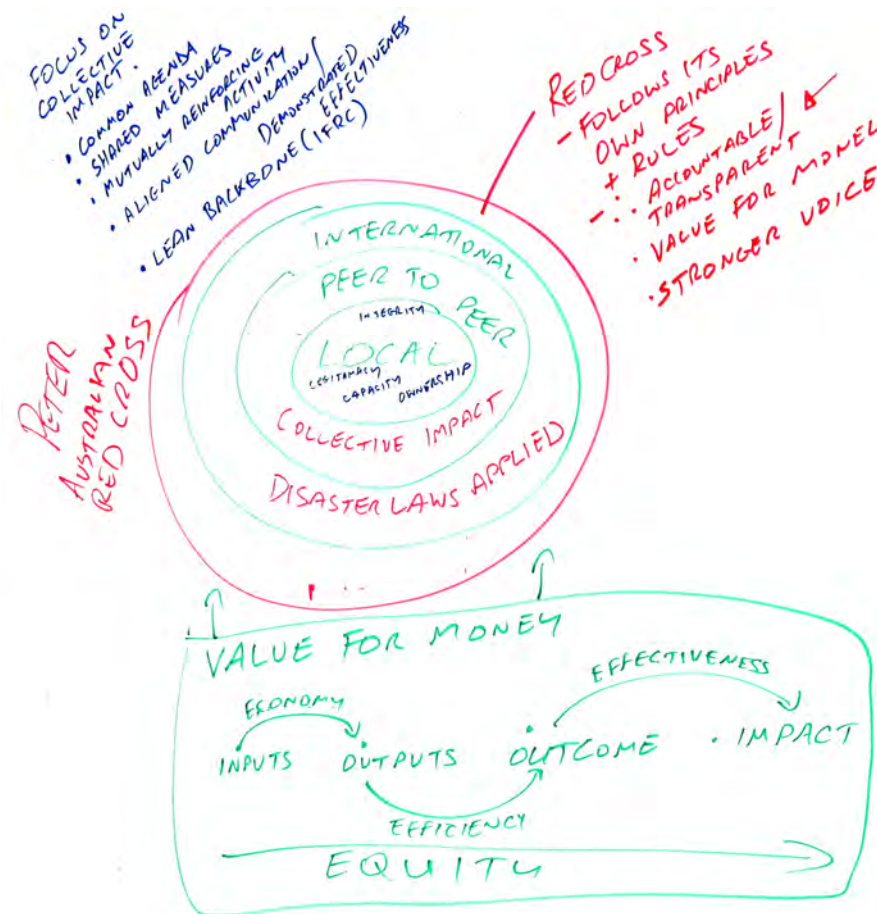 FOCUS ON
COLLECTIVE
IMPACT.
• COMMON AGENDA
• SHARED MEASURES
• MUTUALLY REINFORCING
ACTIVITY
• ALIGNED COMMUNICATION/
DEMONSTRATED
EFFECTIVENESS
• LEAN BACKBONE (IFRC)
RED CROSS
- FOLLOWS ITS
OWN PRINCIPLES
+ RULES
- ∴ ACCOUNTABLE/
TRANSPARENT
• VALUE FOR MONEY
• STRONGER VOICE
PETER
AUSTRALIAN
RED CROSS
INTERNATIONAL
PEER TO PEER
INTEGRITY
LOCAL
LEGITAMACY
CAPACITY
OWNERSHIP
COLLECTIVE IMPACT
DISASTER LAWS APPLIED
VALUE FOR MONEY
ECONOMY
EFFECTIVENESS
INPUTS • OUTPUTS • OUTCOME • IMPACT
EFFICIENCY
EQUITY